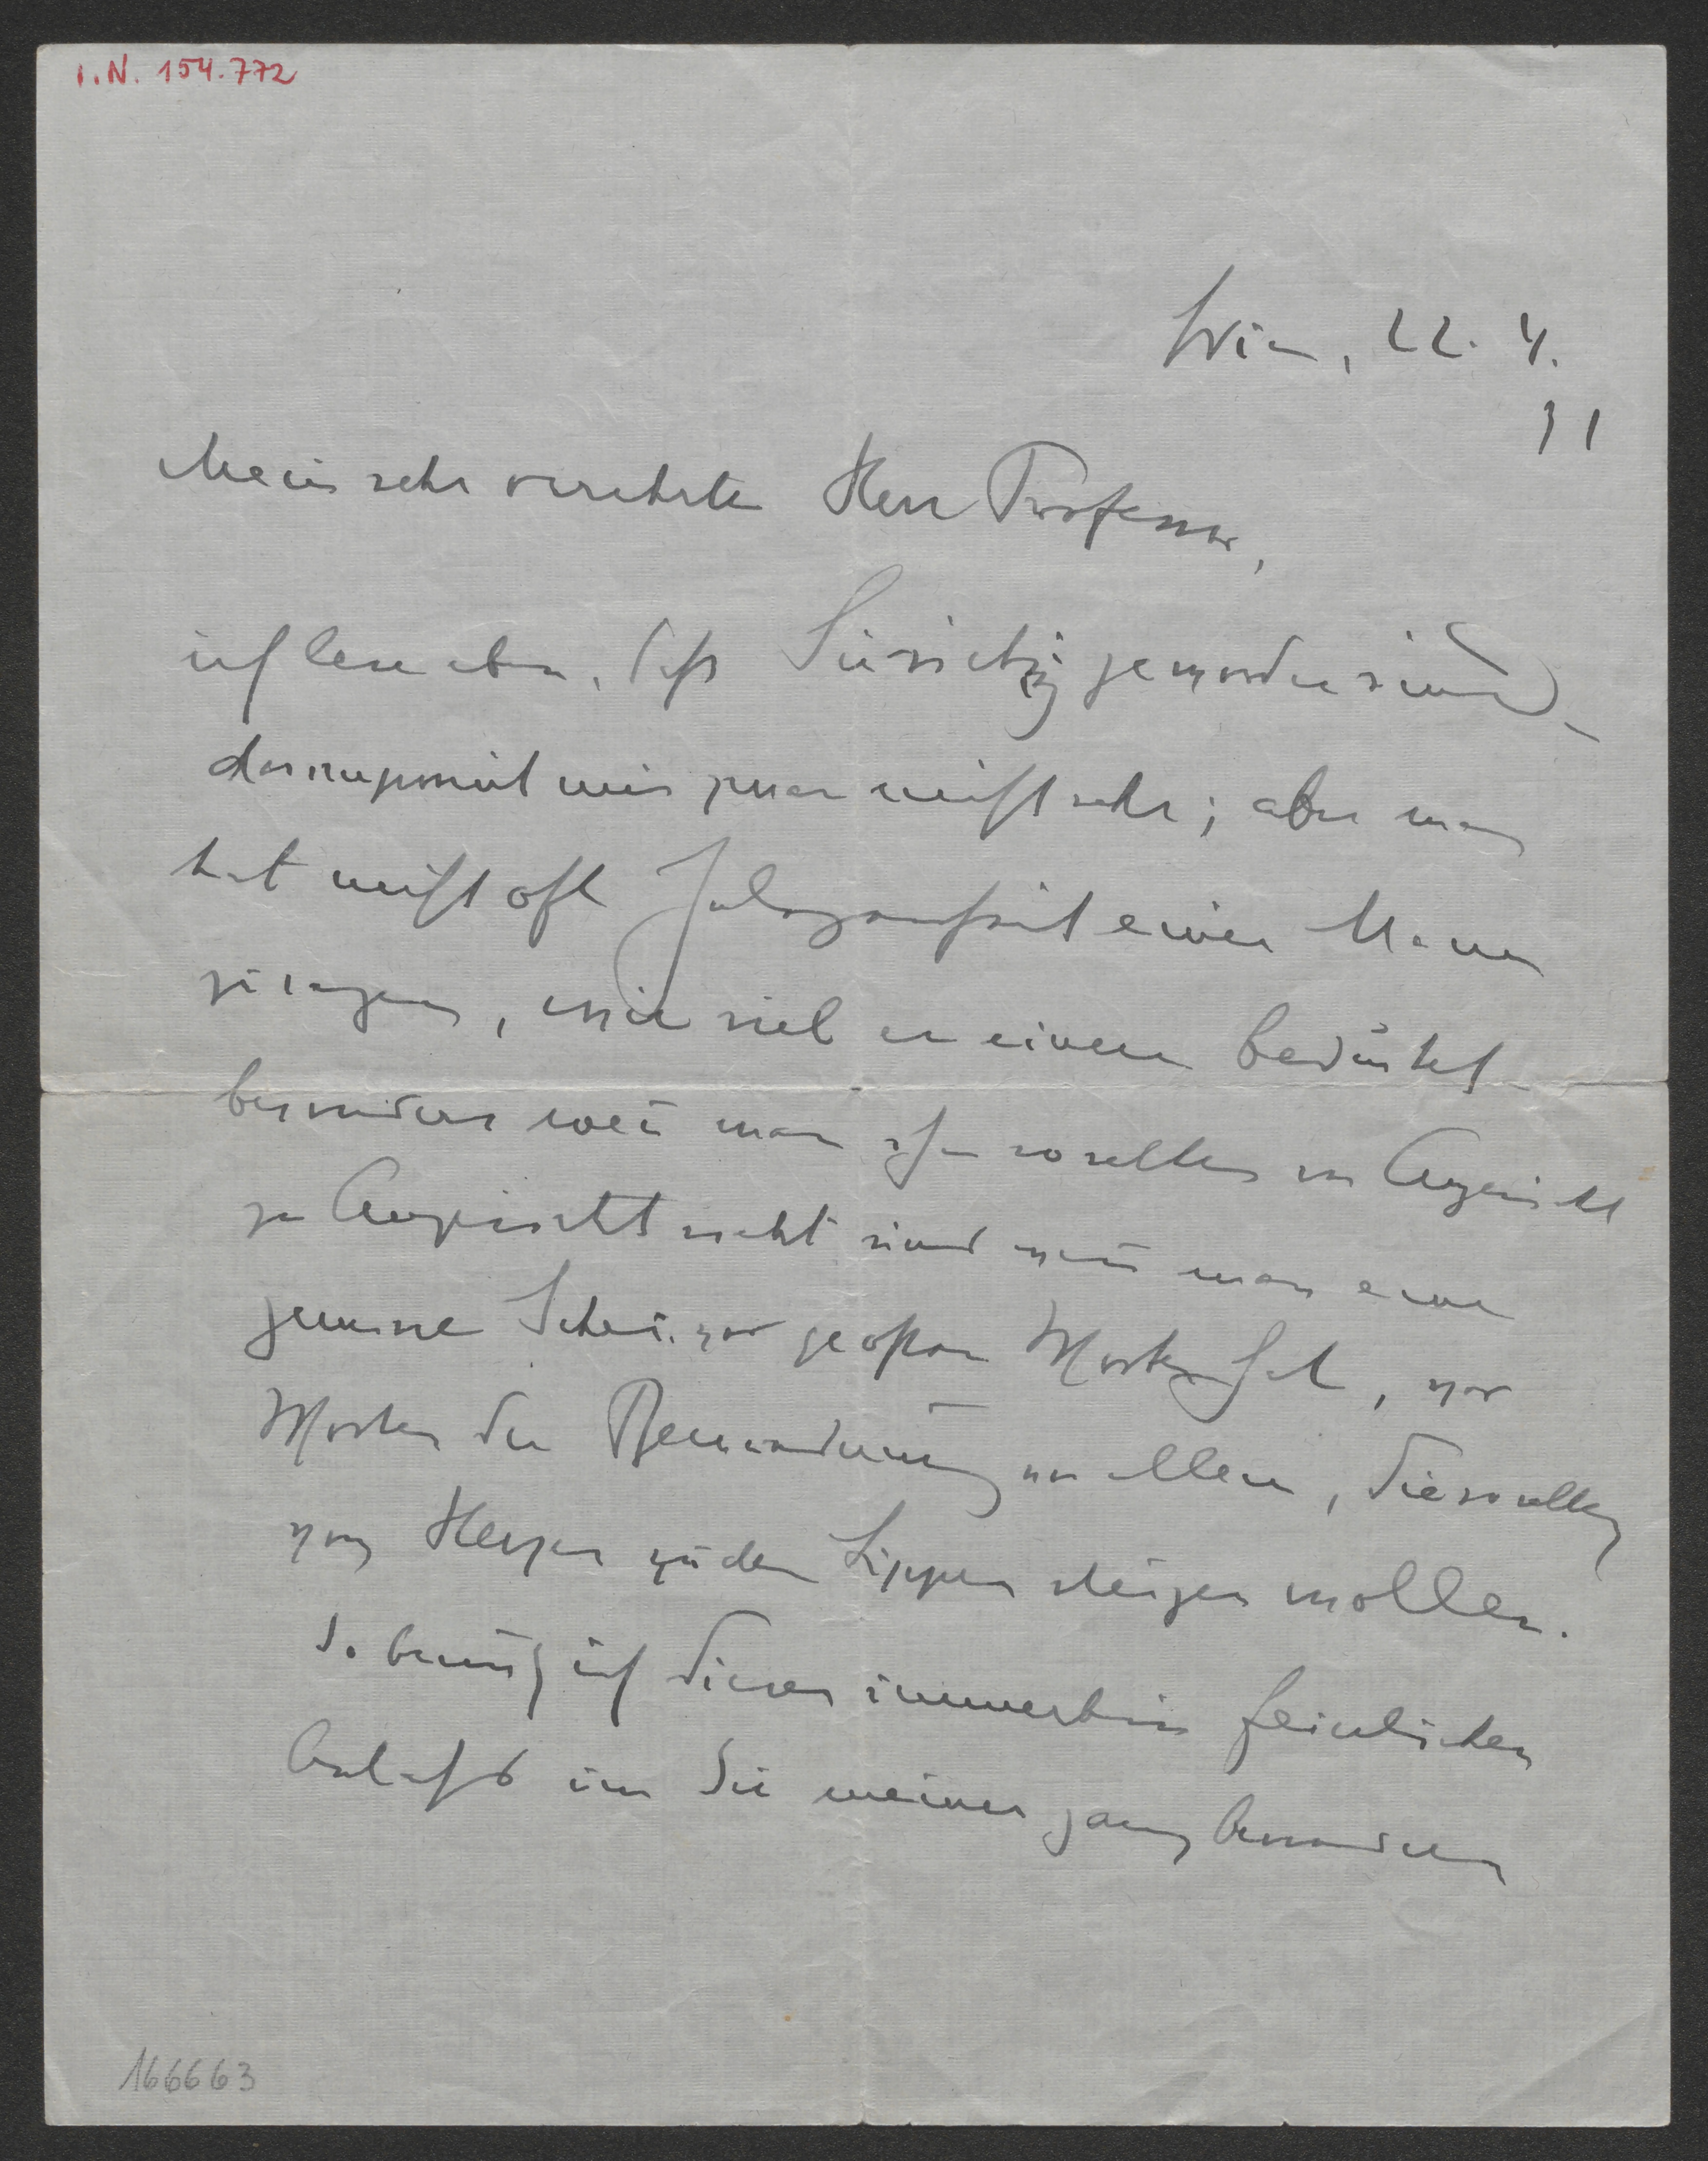 I.N. 154.772
Wien, 22. 4.
31
Mein sehr verehrter Herr Professor,
ich lese eben, daß Sie siebzig geworden sind_
das imponiert mir zwar nicht sehr; aber man
hat nicht oft Gelegenheit einem Mann
zu sagen, wie viel er einem bedeutet –
besonders weñ man ihn so selten von Angesicht
zu Angesicht sieht und weñ man eine
gewisse Scheu vor großen Worten hat, vor
Worten der Bewunderung vor allem, die so selten
vom Herzen zu den Lippen steigen wollen.
So benütz ich diesen immerhin feierlichen
Anlaß um Sie meiner ganz besonderen
166663